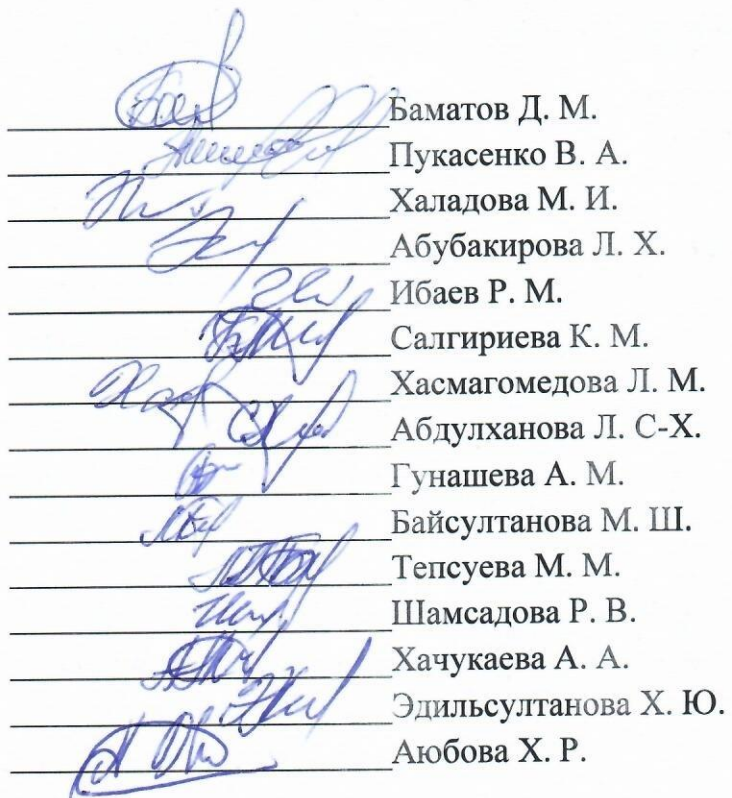 Баматов Д. М.
Пукасенко В. А.
Халадова М. И.
Абубакирова Л. Х.
Ибаев Р. М.
Салгириева К. М.
Хасмагомедова Л. М.
Абдулханова Л. С-Х.
Гунашева А. М.
Байсултанова М. Ш.
Тепсуева М. М.
Шамсадова Р. В.
Хачукаева А. А.
Эдильсултанова Х. Ю.
Аюбова Х. Р.